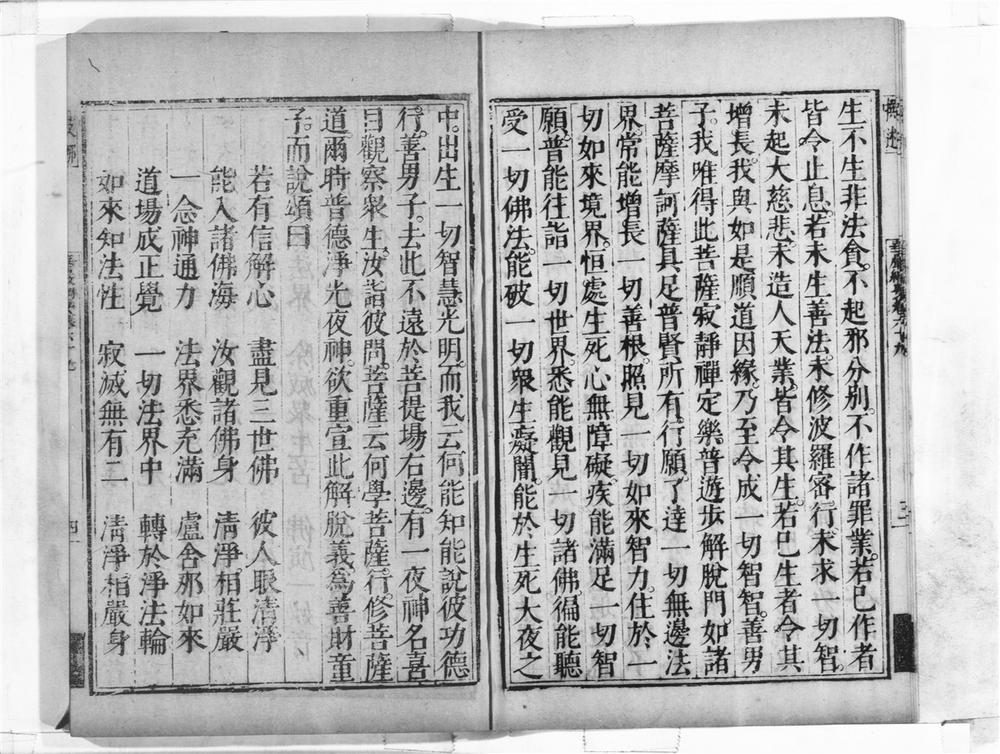 生不生非法貪。不起邪分別。不作諸罪業。若已作者
皆令止息。若未生善法。未修波羅密行。未求一切智。
未起大慈悲。未造人天業。皆令其生。若已生者。令其
增長。我與如是順道因緣。乃至令成一切智智。善男
子。我唯得此菩薩寂靜禪定樂普遊步解脫門。如諸
菩薩摩訶薩。具足普賢所有行願。了達一切無邊法
界。常能增長一切善根。照見一切如來智力。住於一
切如來境界。恒處生死。心無障礙。疾能滿足一切智
願。普能往詣一切世界。悉能觀見一切諸佛。徧能聽
受一切佛法。能破一切眾生癡闇。能於生死大夜之
中。出生一切智慧光明。而我云何能知能說彼功德
行。善男子。去此不遠。於菩提場右邊。有一夜神。名喜
目觀察眾生。汝詣彼問。菩薩云何學菩薩行。修菩薩
道。爾時普德淨光夜神。欲重宣此解脫義。為善財童
子。而說頌曰
若有信解心 盡見三世佛 彼人眼清淨
能入諸佛海 汝觀諸佛身 清淨相莊嚴
一念神通力 法界悉充滿 盧舍那如來
道場成正覺 一切法界中 轉於淨法輪
如來知法性 寂滅無有二 清淨相嚴身
四